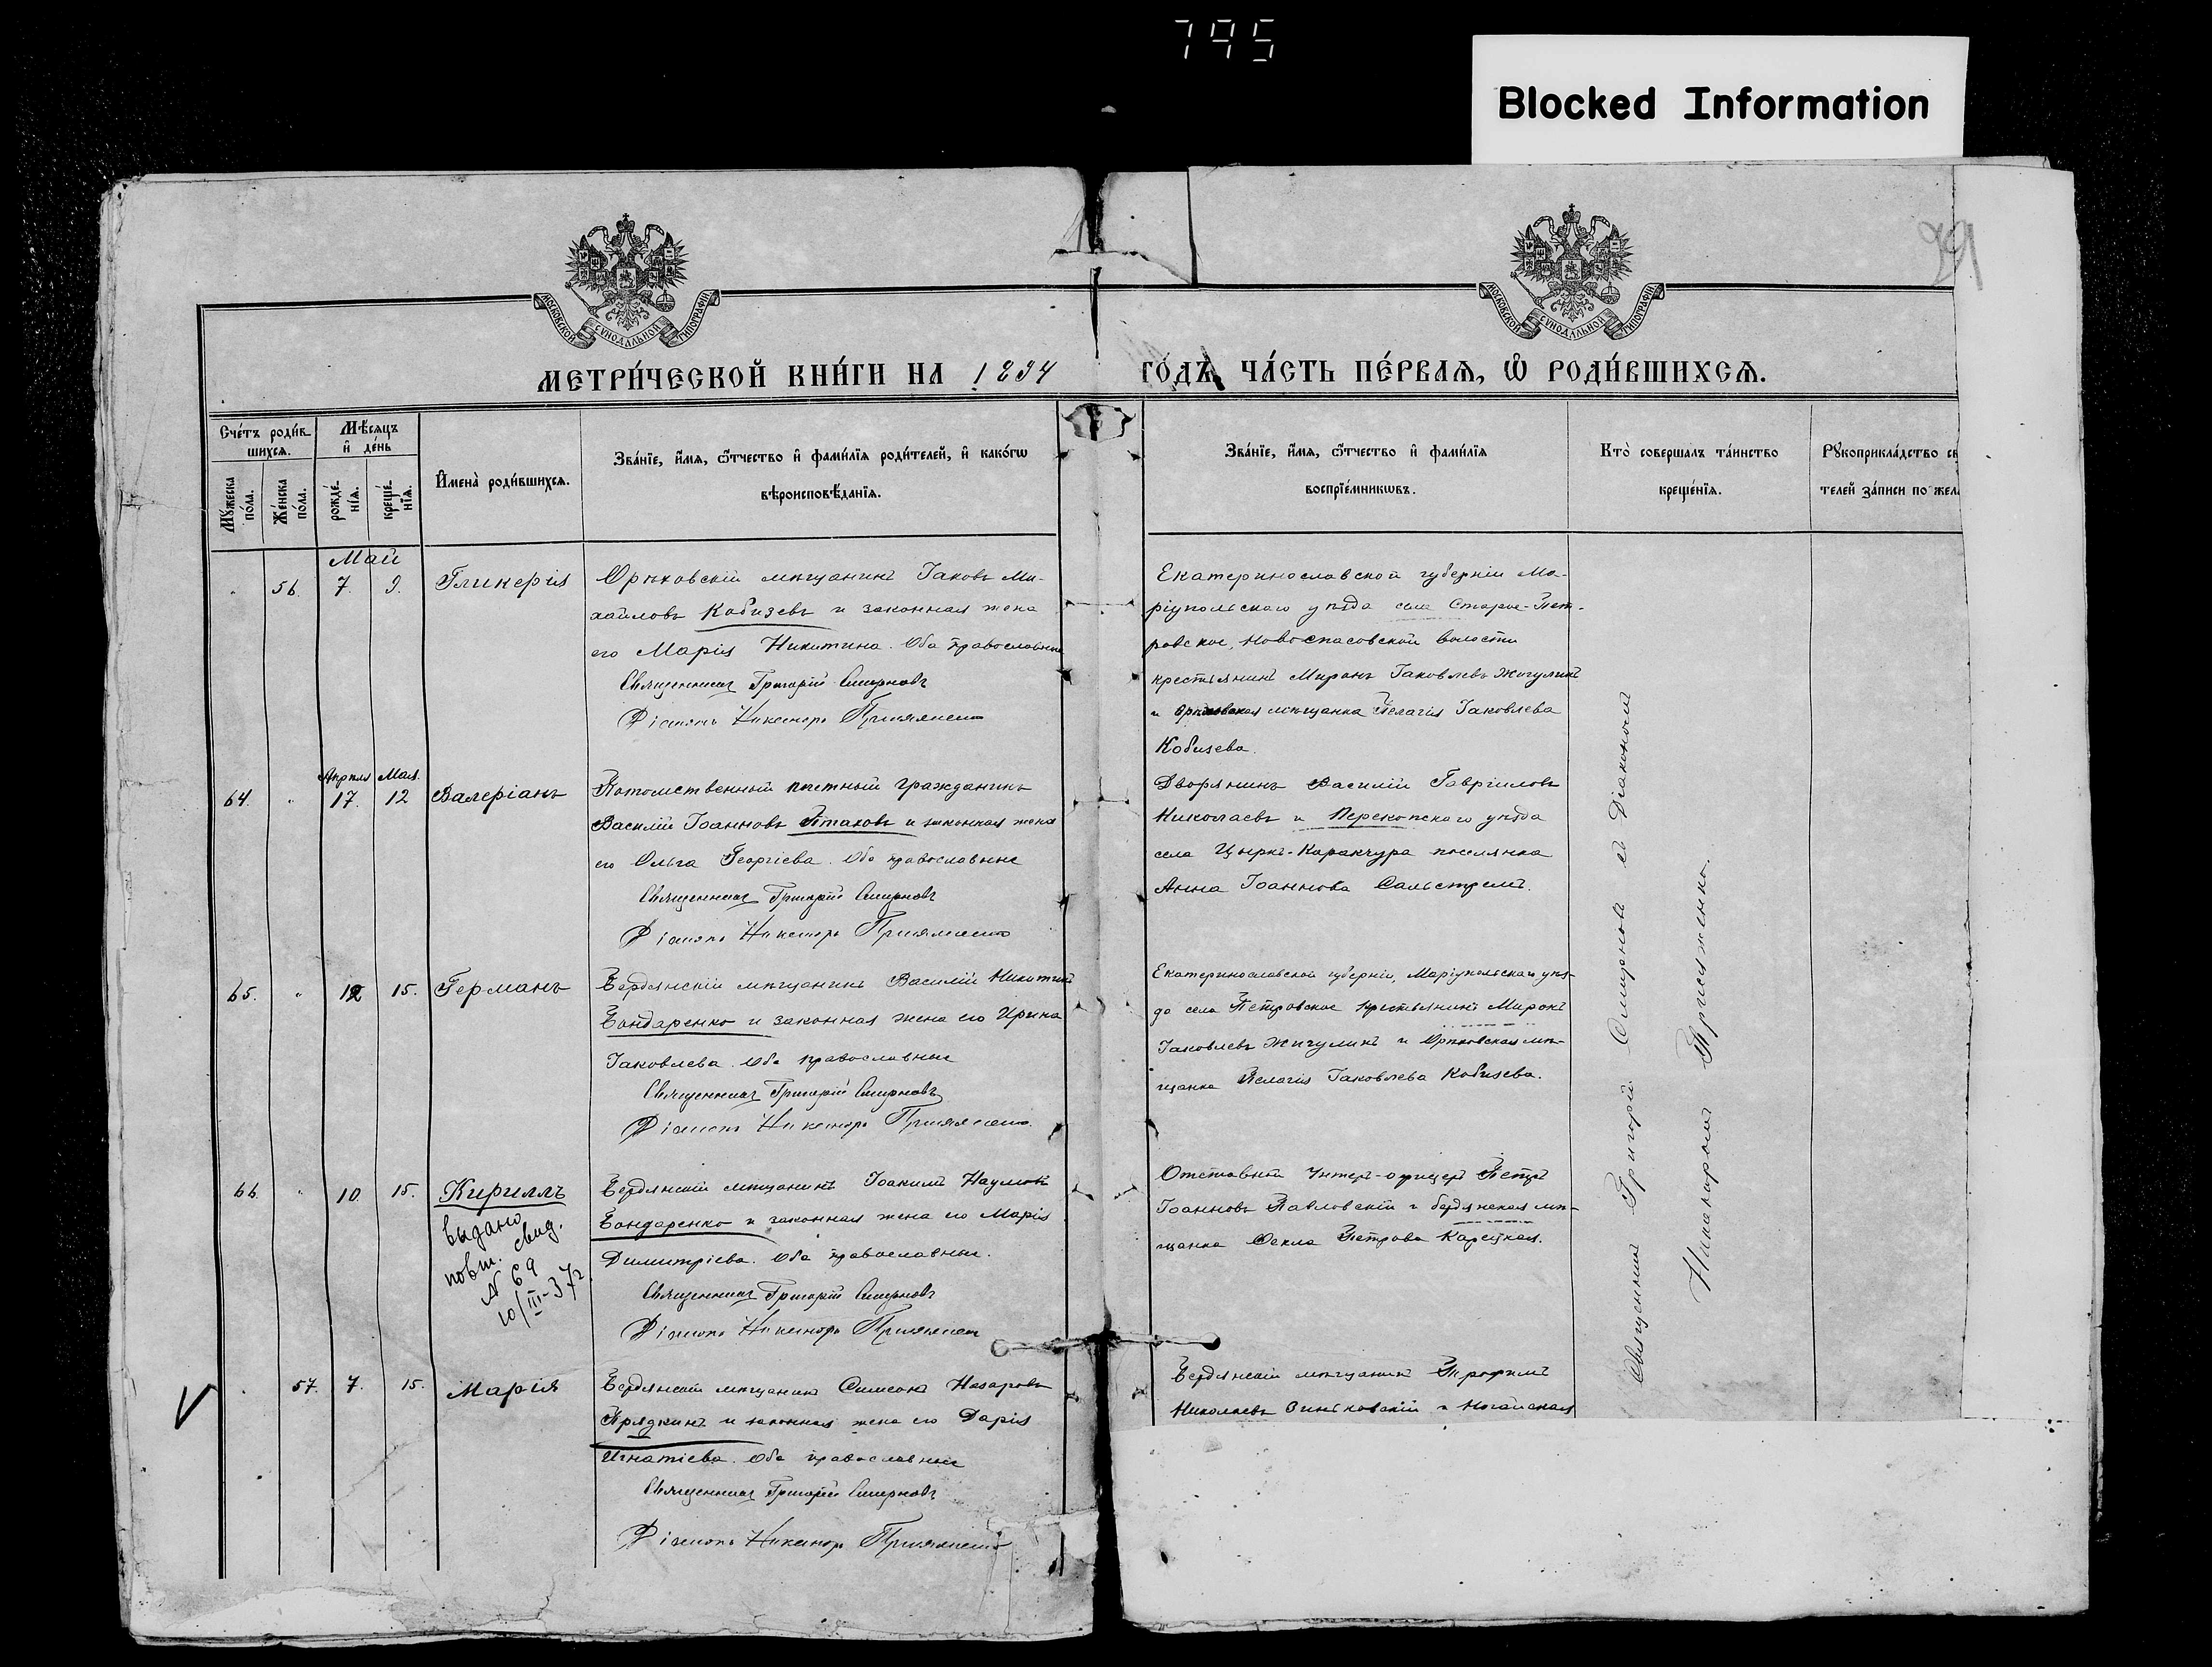 795
Blocked Information
МОСКОВСКОЙ СУНОДАЛЬНОЙ ТИПОГРАФІИ
МОСКОВСКОЙ СУНОДАЛЬНОЙ ТИПОГРАФІИ
МЕТРИ́ЧЕСКОЙ КНИ́ГИ НА 1894 ГО́ДЪ, ЧА́СТЬ ПЕ́РВАѦ, Ѡ҆ РОДИ́ВШИХСѦ.
Сче́тъ роди́в
шихсѧ.
Мꙋ́жеска по́ла.
Же́нска по́ла.
Мѣ́сѧцъ
и҆ де́нь
рожде́нїѧ.
креще́нїѧ.
И҆мена̀ роди́вшихсѧ.
Зва́нїе, и҆́мѧ, ѻ҆́тчество и҆ фами́лїѧ роди́телей, и҆ како́гѡ
вѣроисповѣ́данїѧ.
Зва́нїе, и҆́мѧ, ѻ҆́тчество и҆ фами́лїѧ
воспрїе́мникѡвъ.
Кто̀ соверша́лъ та́инство
креще́нїѧ.
Рꙋкоприкла́дство св
телей за́писи по жел
Май
56. 7. 9. Гликерія
Орѣховскій мѣщанинъ Іаковъ Ми-
хайловъ Кобизевъ и законная жена
его Марія Никитина. Оба православные
Священникъ Григорій Смирновъ
Діаконъ Никаноръ Присяженко
Екатеринославской губерніи Ма-
ріупольскаго уѣзда села Старое-Пет-
ровское, Новоспасовской волости
крестьянинъ Миронъ Іаковлевъ Жигулинъ
и Орѣховская мѣщанка Пелагія Іаковлева
Кобизева.
Апрѣля Мая.
64. 17. 12 Валеріанъ
Потомственный почетный гражданинъ
Василій Іоанновъ Птаховъ и законная жена
его Ольга Георгіева. Оба православные
Священникъ Григорій Смирновъ
Діаконъ Никаноръ Присяженко
Дворянинъ Василій Гавріиловъ
Николаевъ и Перекопскаго уѣзда
села Цыркъ-Каракчура поселянка
Анна Іоаннова Сальстремъ.
65. 12 15. Германъ
Бердянскій мѣщанинъ Василій Никитинъ
Бондаренко и законная жена его Ирина
Іаковлева. Оба православные
Священникъ Григорій Смирновъ
Діаконъ Никаноръ Присяженко.
Екатеринославской губерніи, Маріупольскаго уѣз-
да села Петровское крестьянинъ Миронъ
Іаковлевъ Жигулинъ и Орѣховская мѣ-
щанка Пелагія Іаковлева Кобизева.
66. 10. 15. Кириллъ
выдано
повт. свид.
N 69
10/III-37г.
Бердянскій мѣщанинъ Іоакимъ Наумовъ
Бондаренко и законная жена его Марія
Димитріева. Оба православные.
Священникъ Григорій Смирновъ
Діаконъ Никаноръ Присяженко
Отставный Унтеръ-офицеръ Петръ
Іоанновъ Павловскій и бердянская мѣ-
щанка Фекла Петрова Карецкая.
57. 7. 15. Марія
Бердянскій мѣщанинъ Симеонъ Назаровъ
Прядкинъ и законная жена его Дарія
Игнатіева. Оба православные
Священникъ Григорій Смирновъ
Діаконъ Никаноръ Присяженко
Бердянскій мѣщанинъ Трофимъ
Николаевъ Зиньковскій и Ногайская
Священникъ Григорій Смирновъ съ Діакономъ
Никаноромъ Присяженко.